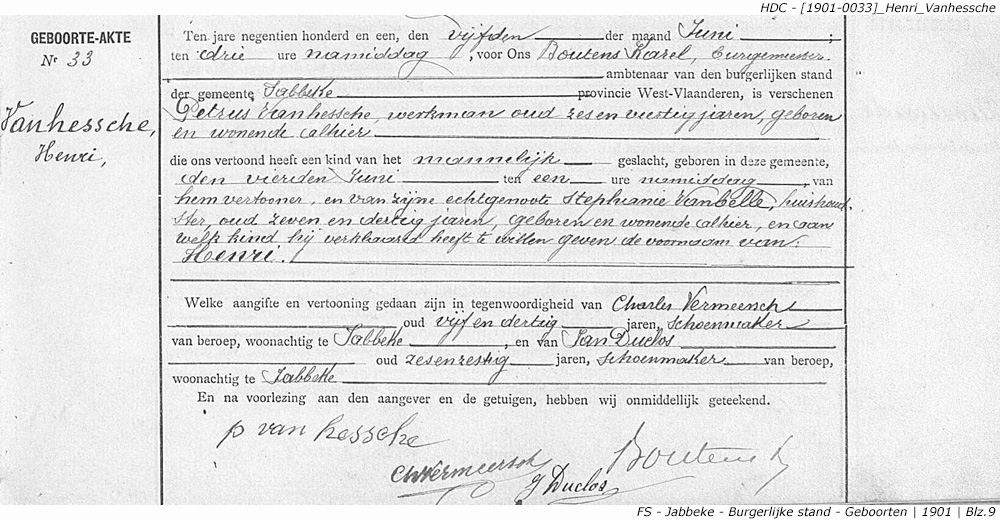 HDC - [1901-0033]_Henri_Vanhessche
GEBOORTE-AKTE
Nr 33
Vanhessche,
Henri,
Ten jare negentien honderd en een, den vijfden der maand Juni ;
ten drie ure namiddag , voor Ons Boutens Karel, burgemeester
ambtenaar van den burgerlijken stand
der gemeente Jabbeke provincie West-Vlaanderen, is verschenen
Petrus Vanhessche, werkman oud zes en veertig jaren, geboren
en wonende alhier
die ons vertoond heeft een kind van het mannelijk geslacht, geboren in deze gemeente,
den vierden Juni ten een ure namiddag , van
hem vertooner, en van zijne echtgenoote Stephanie Vanbelle, huishoud-
ster, oud zeven en dertig jaren, geboren en wonende alhier, en aan
welk kind hij verklaard heeft te willen geven de voornaam van:
Henri.
Welke aangifte en vertooning gedaan zijn in tegenwoordigheid van Charles Vermeersch
oud vijf en dertig jaren, schoenmaker
van beroep, woonachtig te Jabbeke , en van Jan Duclos
oud zesenzestig jaren, schoenmaker van beroep,
woonachtig te Jabbeke
En na voorlezing aan den aangever en de getuigen, hebben wij onmiddellijk geteekend.
p van hessche
Ch Vermeersch
J Duclos
Boutens K
FS - Jabbeke - Burgerlijke stand - Geboorten | 1901 | Blz.9